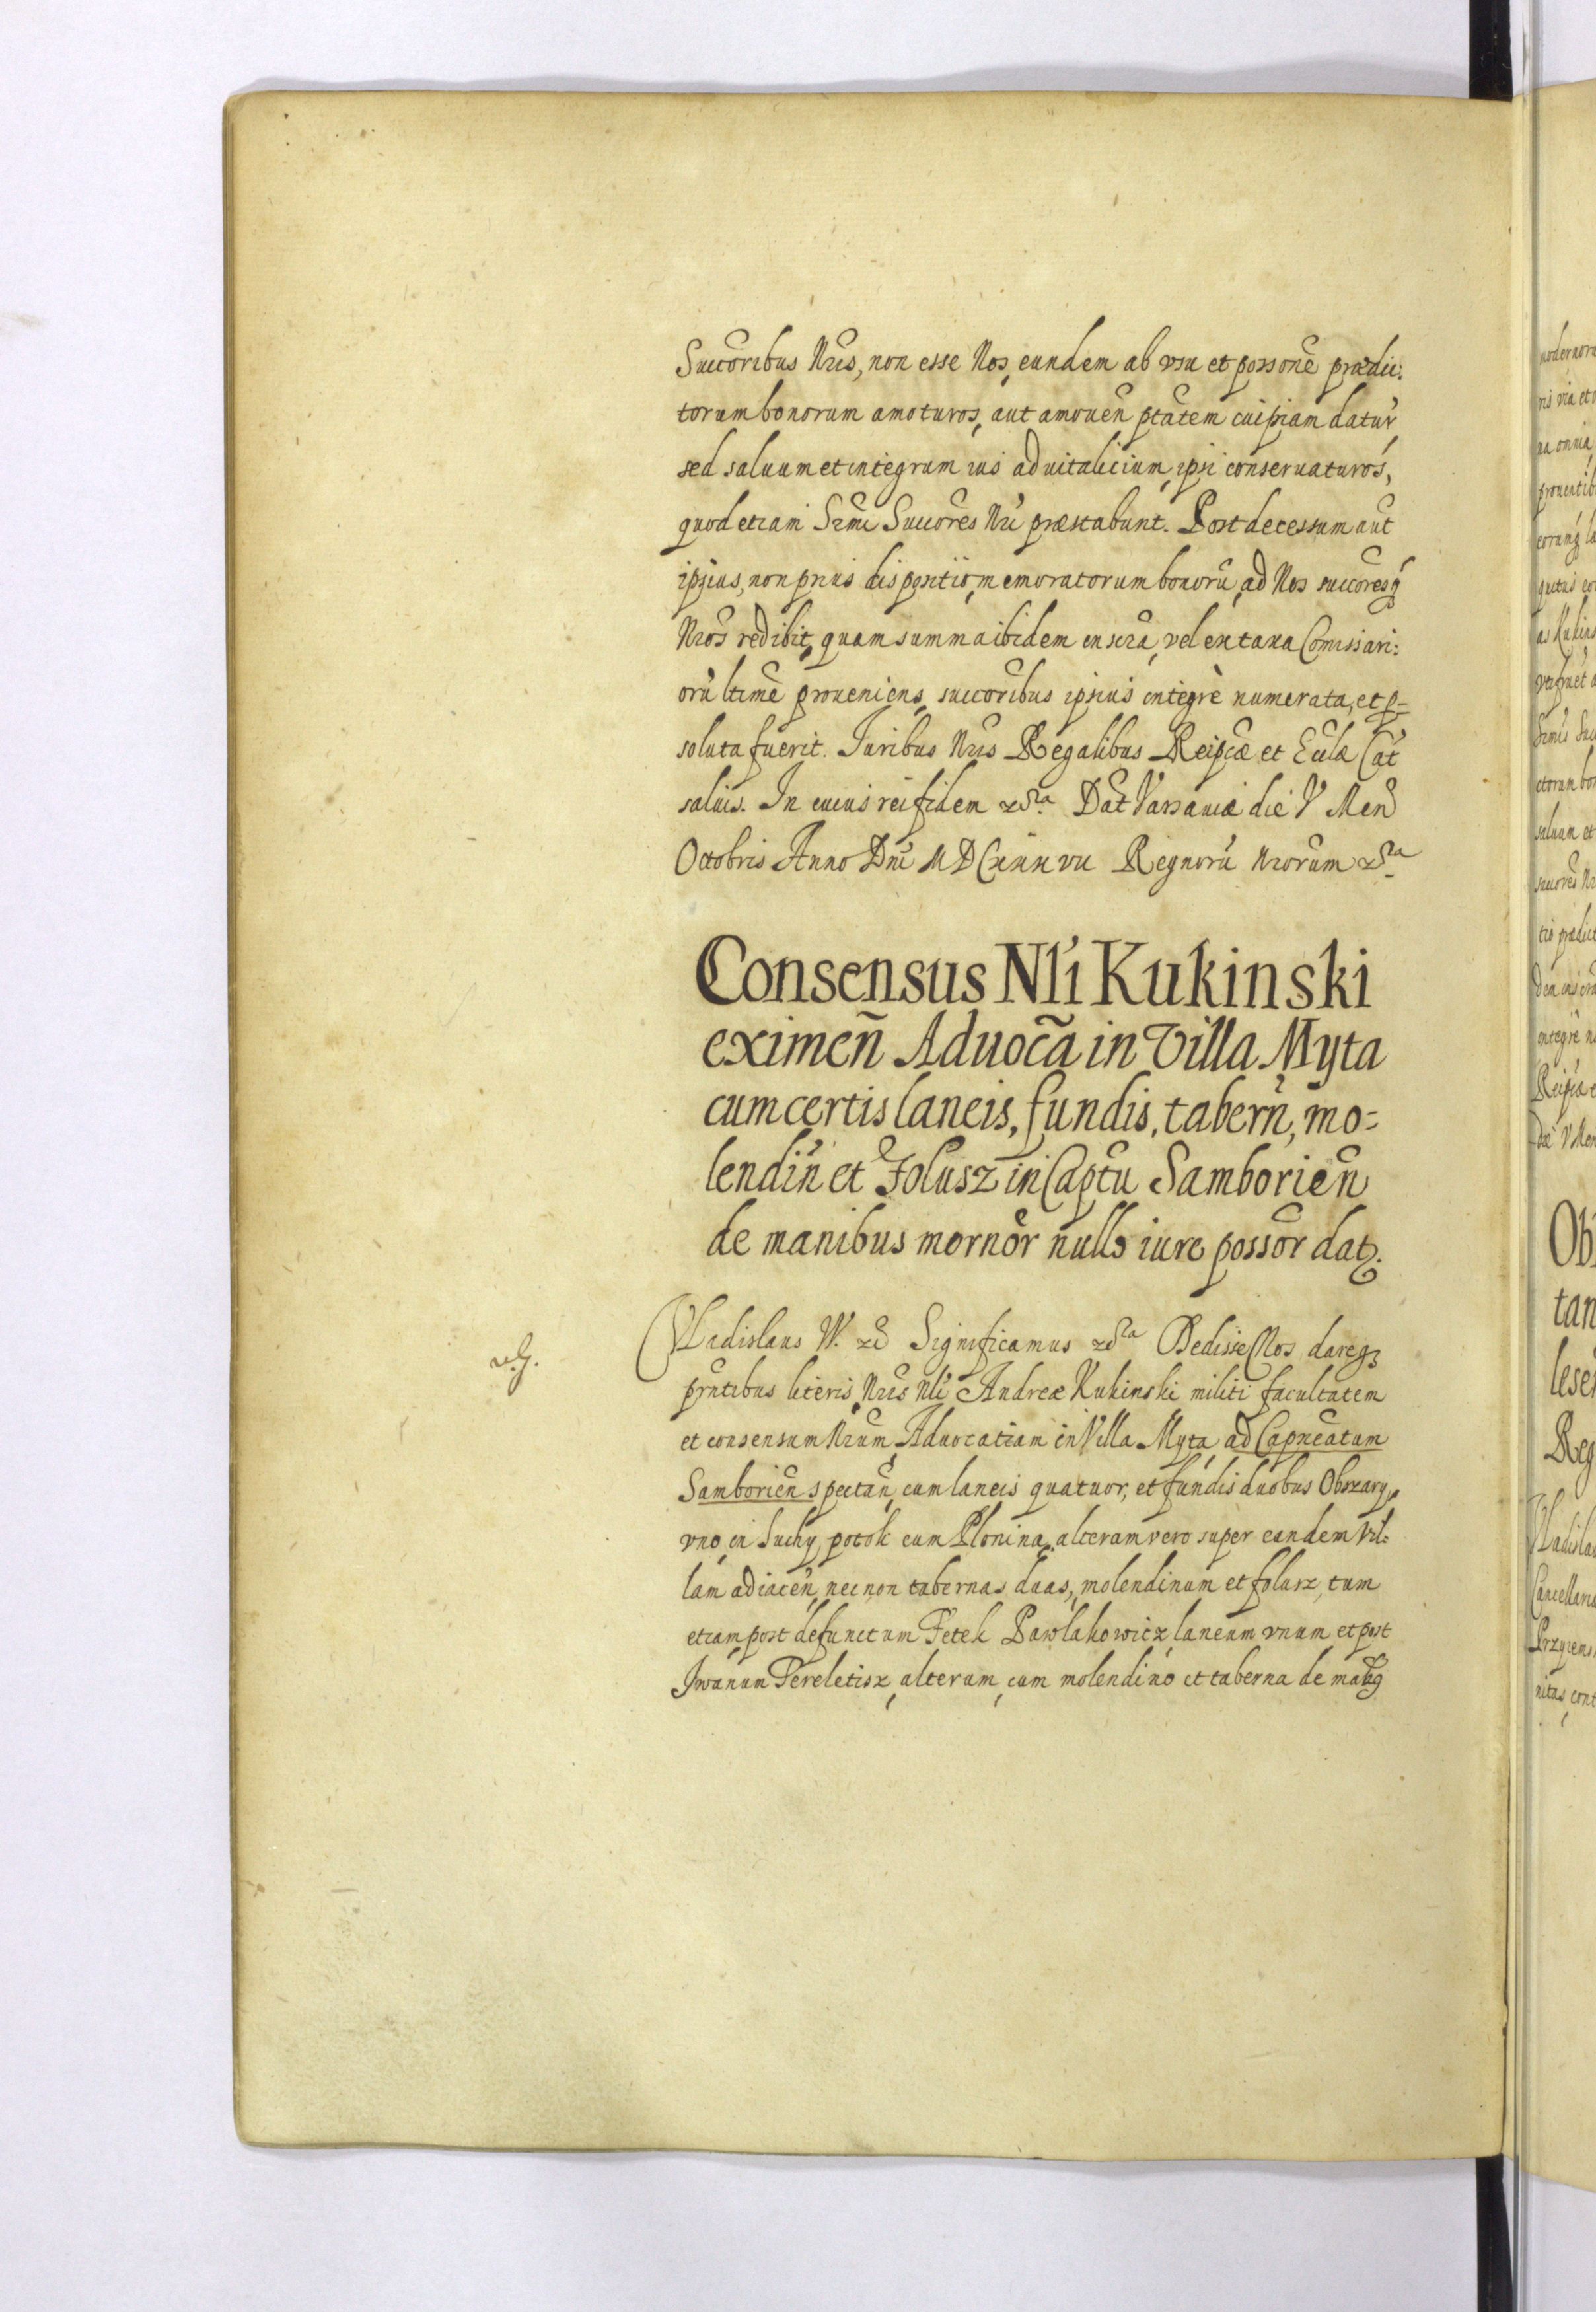 Succoribus Nris, non esse Nos, eundem ab usu et possone prædic:
torum bonorum amoturos, aut amouen ptatem cuipiam datur
sed saluum et integrum ius aduitalicium, ipsi conseruaturos,
quod etiam Srmi Succores Nri præstabunt. Post decessum aut
ipsius, non prius dispositio, memoratorum bonorũ, ad Nos succoresq
Nros redibit, quam summa ibidem inscra, vel ex taxa Comissari:
orũ ltime proueniens, succoribus ipsius integrè numerata, et p=
soluta fuerit. Iuribus Nris Regalibus Reipcæ et Eccla Cat
saluis. In cuius rei fidem &ra. Dat Varsauiæ die V Men
Octobris Anno Dni MDCxxxvii Regnorũ Nrorum &ra
Consensus Nli Kukinski
eximen̄ Aduoca in Villa Myta
cum certis laneis, fundis, tabern, mo=
lendin et Folusz in Captu Samborien
de manibus mornor nullo iure possor datq.
Vladislaus IV. &c Significamus &ra Dedisse Nos dareq3
prntibus literis Nris Nli Andreæ Kukinski militi facultatem
et consensum Nrum, Aduocatiam in Villa Myta, ad Capneatum
Samborien spectan, cum laneis quatuor, et fundis duobus Obszary,
vno, in Suchy potok cum Plonina, alteram vero super eandem Vil:
lam adiacen, nec non tabernas duas, molendinum et folusz, tum
etiam post defunctum Fetek Pawlakowicz, laneum vnum et post
Iwanum Pereletisz, alterum, cum molendino et taberna de manq